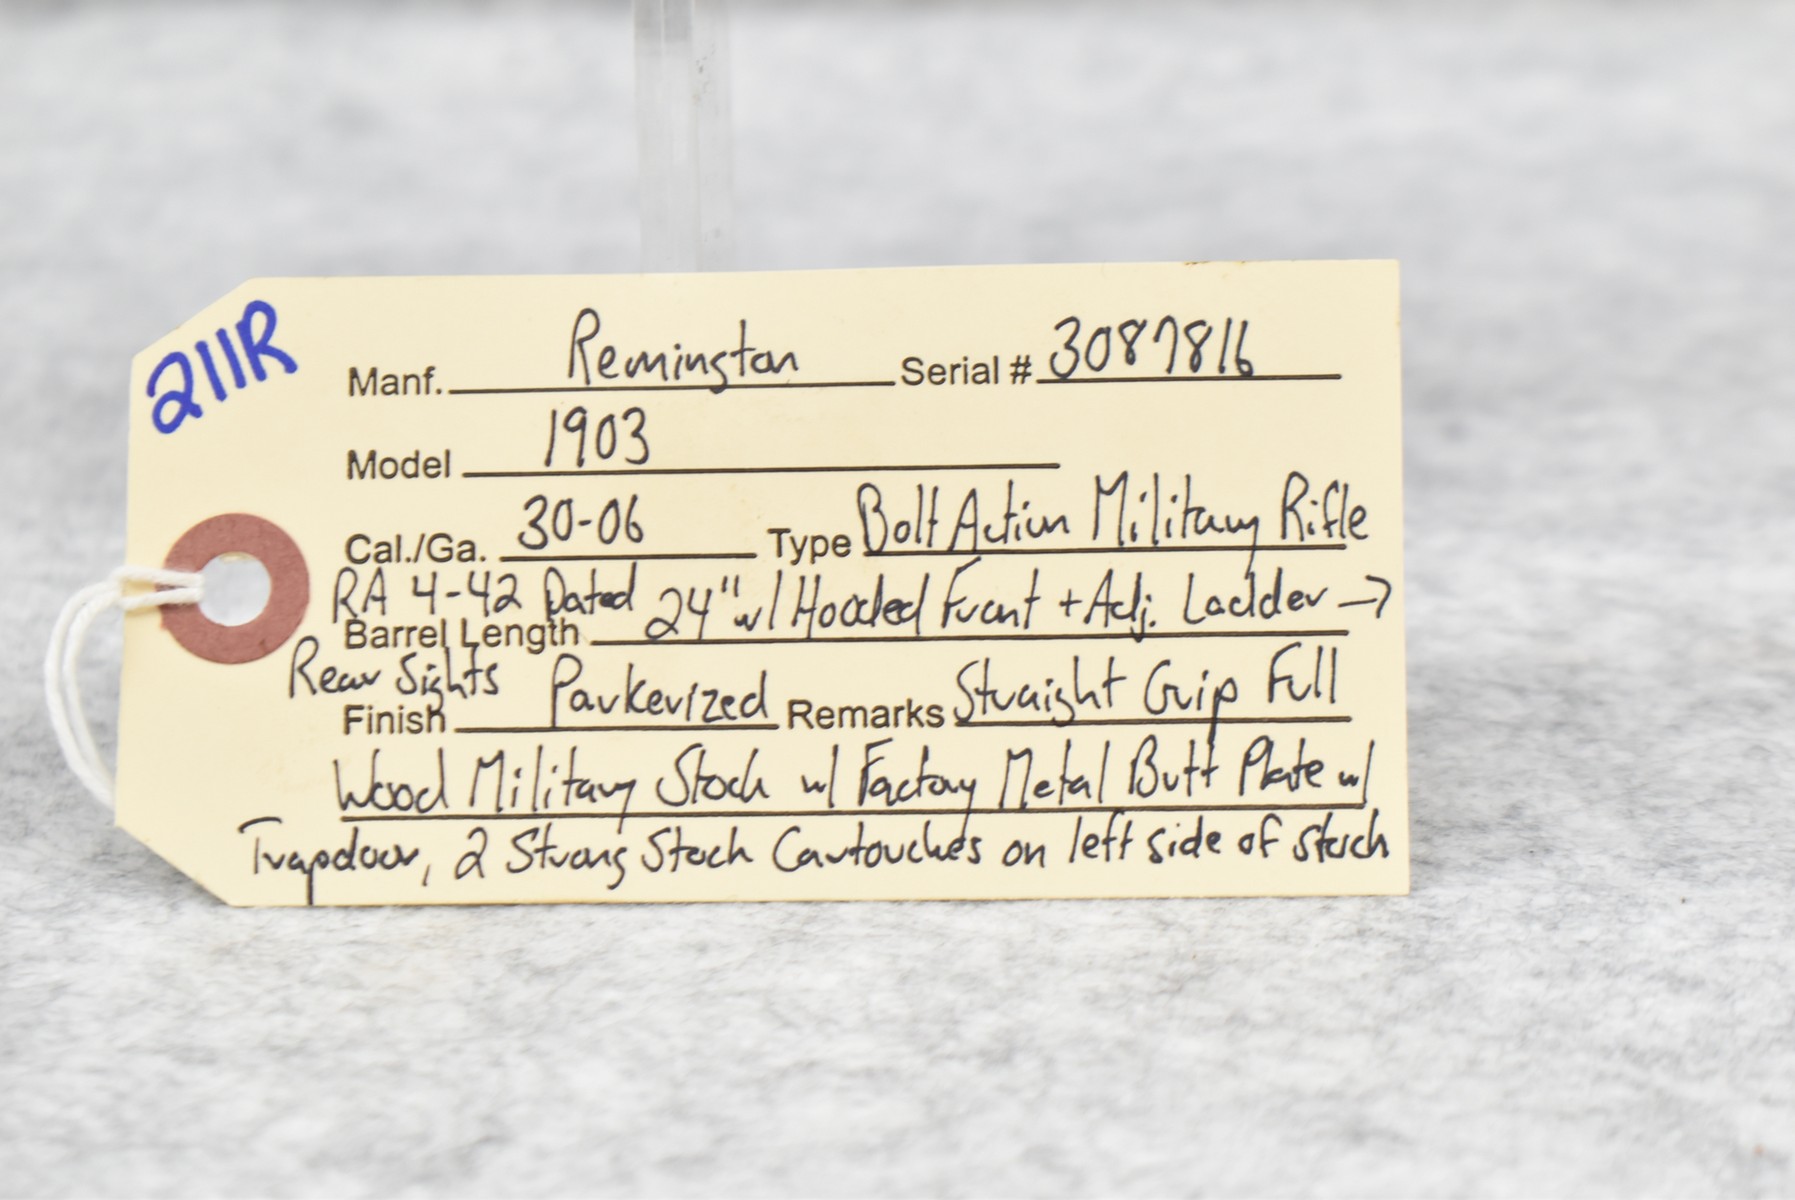 211R
Manf. Remington Serial # 3087816
Model 1903
Cal./Ga. 30-06 Type Bolt Action Military Rifle
RA 4-42 Dated
Barrel Length 24" w/ Hooded Front + Adj. Ladder →
Rear Sights
Finish Parkerized Remarks Straight Grip Full
Wood Military Stock w/ Factory Metal Butt Plate w/
Trapdoor, 2 Strong Stock Cartouches on left side of stock